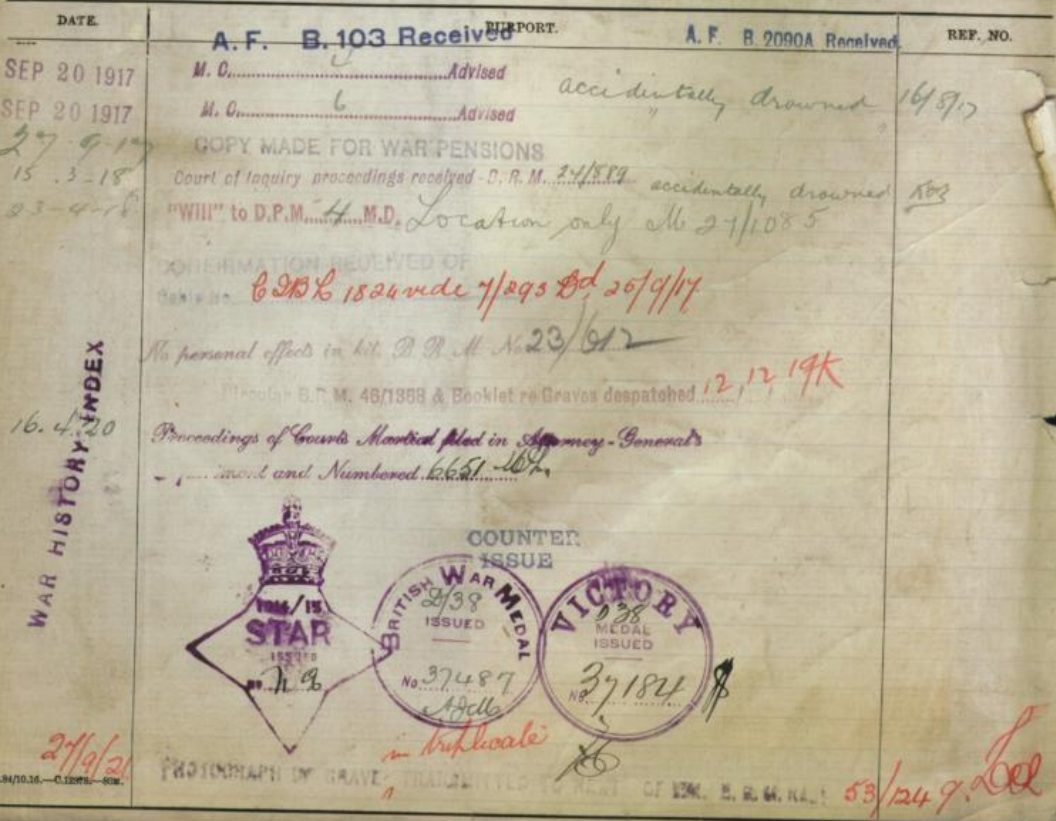 DATE. PURPORT. REF. NO.
A. F. B. 103 Received A. F. B. 2090A Received
SEP 20 1917 M. C. Advised accidentally drowned 16/8/17
SEP 20 1917 M. C. 6 Advised
27-9-17 COPY MADE FOR WAR PENSIONS
15.3-18 Court of Inquiry proceedings received - B. R. M. 24/889 accidentally drowned
23-4-18 "Will" to D.P.M. 4 M.D. Location only M 27/1085
CONFIRMATION RECEIVED OF
Cable No. 1824 vide 7/293 25/9/17
No personal effects in kit. B. R. M. No. 23/612
Circular B.R.M. 46/1368 & Booklet re Graves despatched 12, 12, 19
16.4.20 Proceedings of Courts Martial filed in Attorney-General's
and Numbered 6651
WAR HISTORY INDEX
COUNTER
ISSUE
1914/15
STAR
ISSUED
No
BRITISH WAR MEDAL
D/38
ISSUED
No 37487
VICTORY
D38
MEDAL
ISSUED
No 37184
in triplicate
27/9/21 PHOTOGRAPH OF GRAVE TRANSMITTED TO NEXT OF KIN. B. R. M. No. 53/124